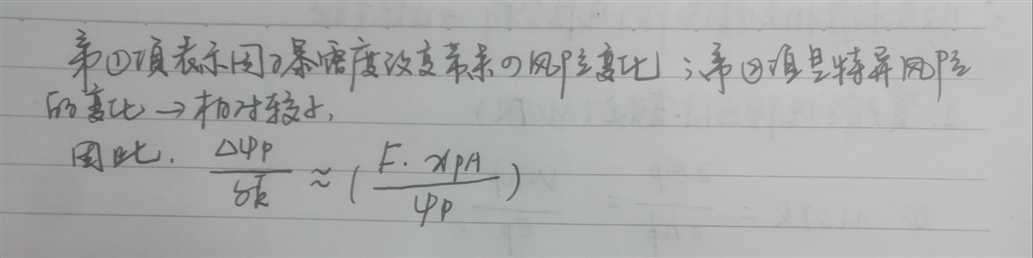 第①项表示因子暴露度改变带来の风险变化；第②项是特异风险
的变化→相对较小，
因此． ΔΨP/δk ≈ (F. χPA/ΨP)